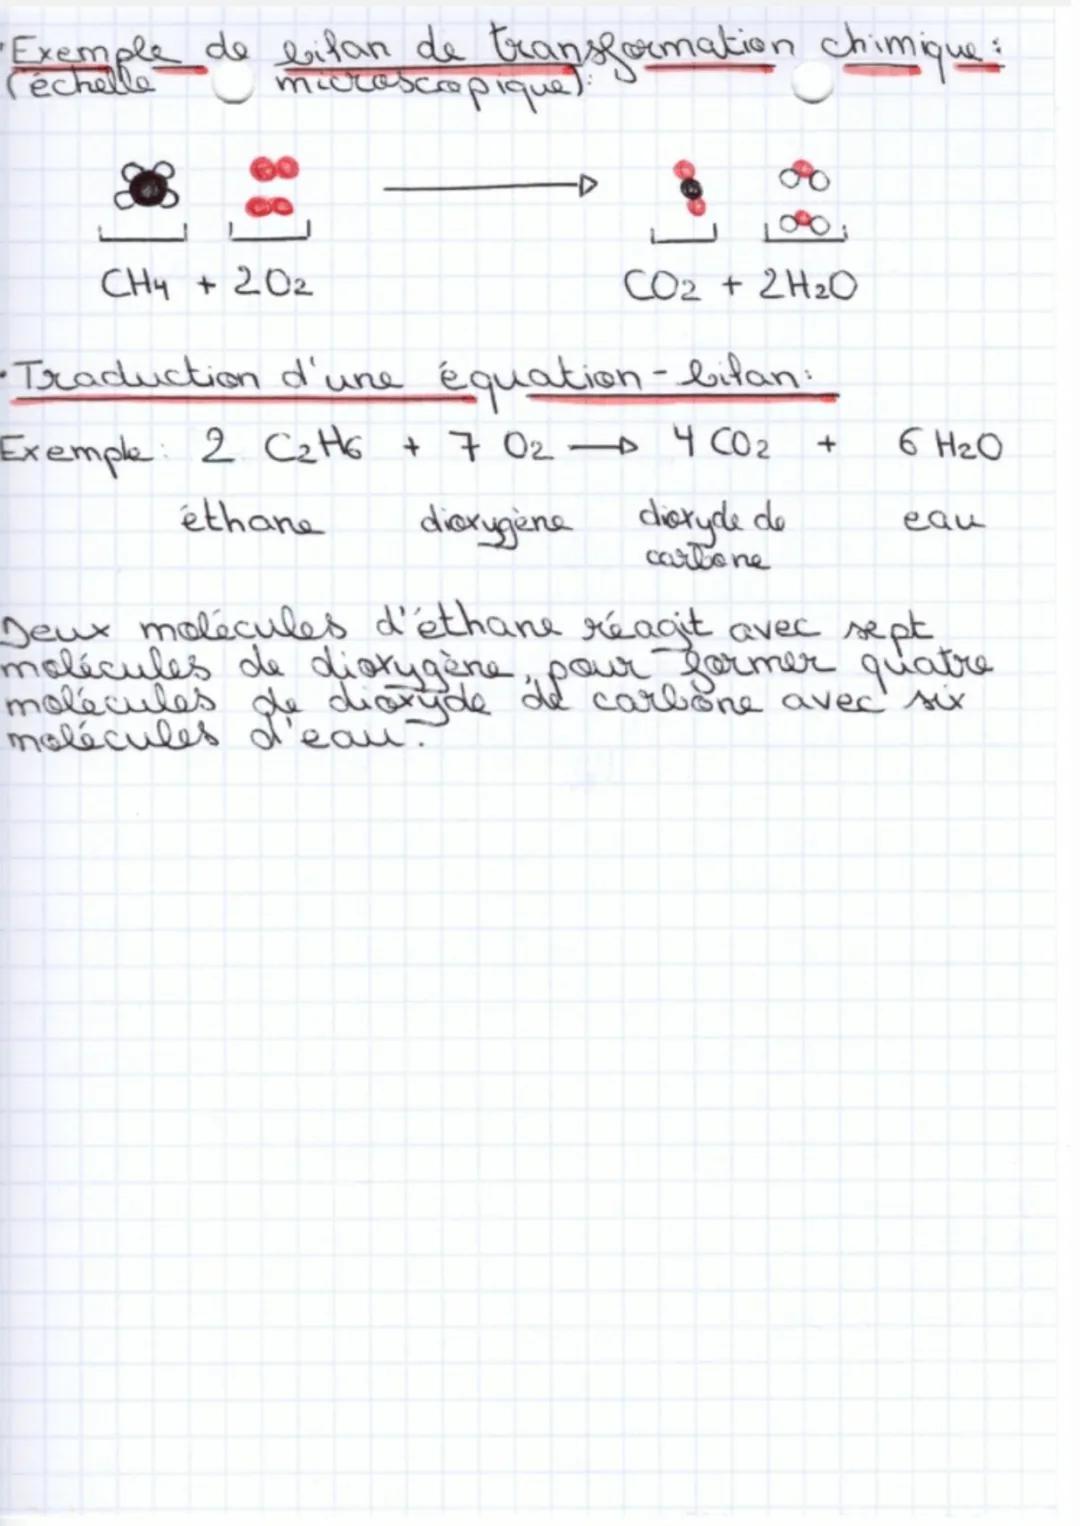 Exemple de bilan de transformation chimique :
(échelle microscopique) :
CH4 + 2O2 CO2 + 2H2O
Traduction d'une équation-bilan :
Exemple : 2 C2H6 + 7 O2 → 4 CO2 + 6 H2O
éthane dioxygène dioxyde de eau
carbone
Deux molécules d'éthane réagit avec sept
molécules de dioxygène, pour former quatre
molécules de dioxyde de carbone avec six
molécules d'eau.